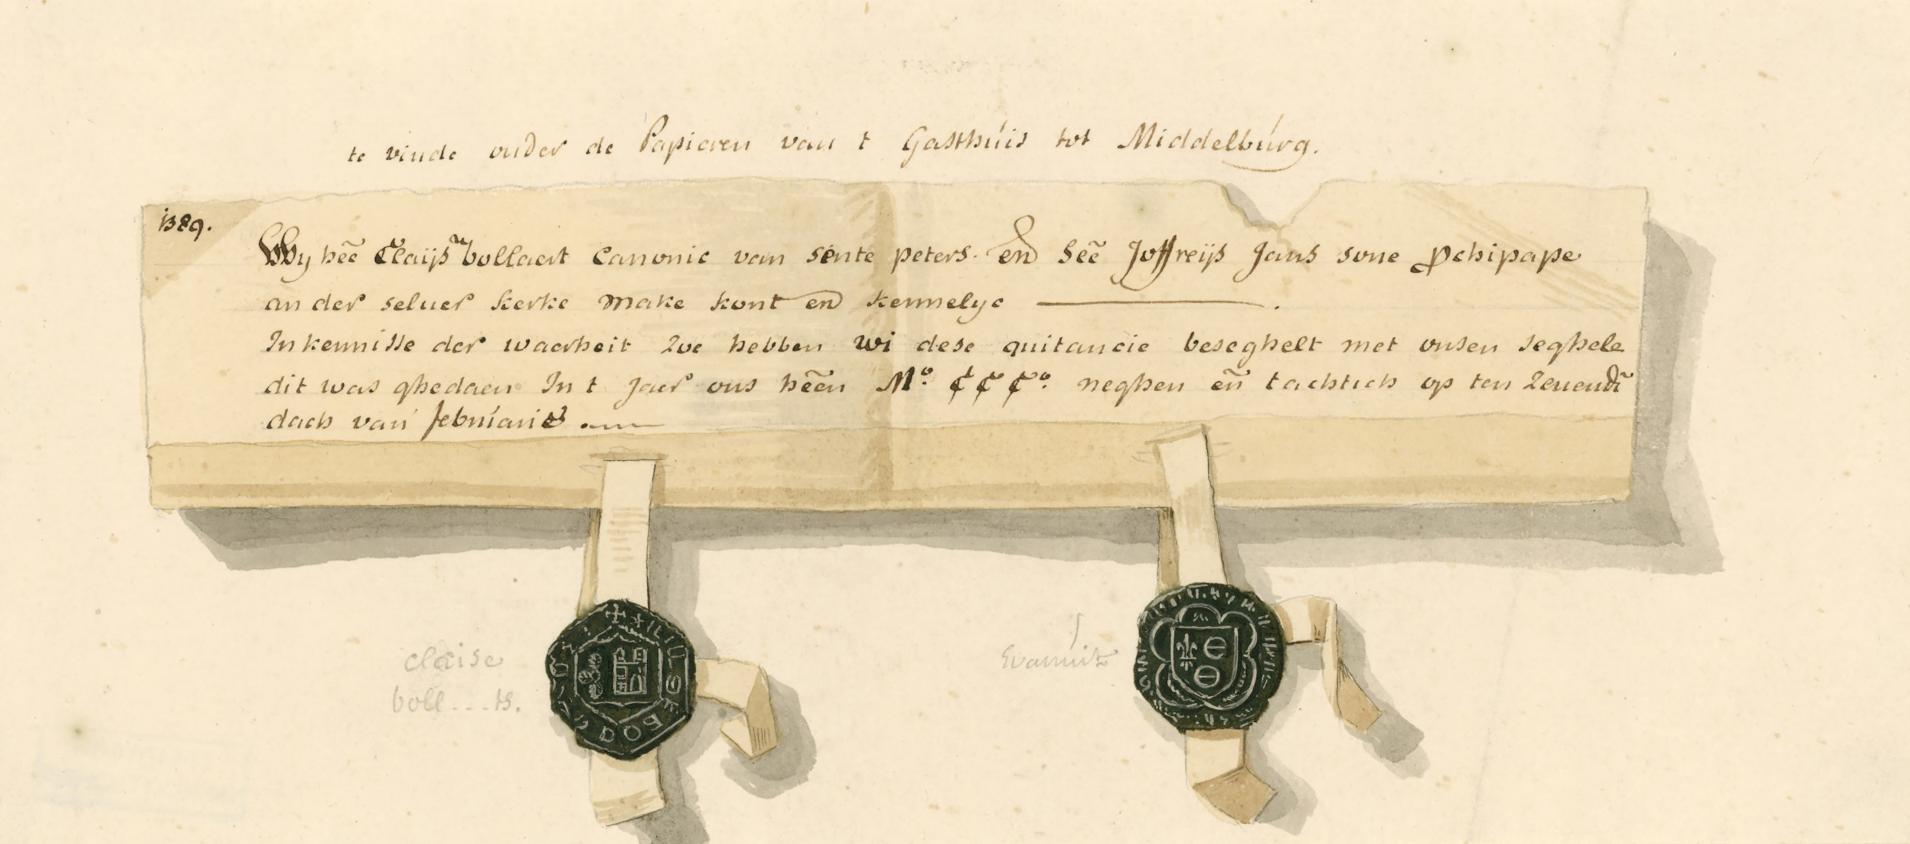 te vinde onder de Papieren van t Gasthuis tot Middelburg.
1389.
Wy heē Claijs bollaert Canonic van sente peters. en̄ heē Joffreijs Jans sone pchipape
an der seluer kerke make kont en̄ kennelyc
In kennisse der waerheit zoe hebben wi dese quitancie beseghelt met onsen seghele
dit was ghedaen In t Jaer ons heēn Mº. CCCº. neghen en̄ tachtich op ten zeuendē
dach van februarie
claise
boll...ts.